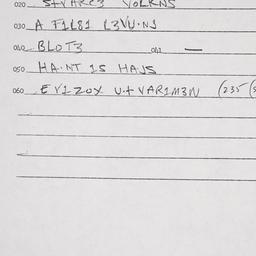 020 STVARC3 VOLKNS
030 A F1L81 L3VU·NS
040 BLOT3 041 —
050 HA·NT 1S HAUS
060 EY1ZOX U·t VAR1M3N (235